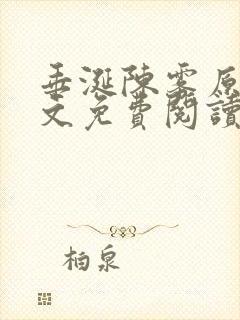 垂涎陳雾原
文免費閱讀
柏泉